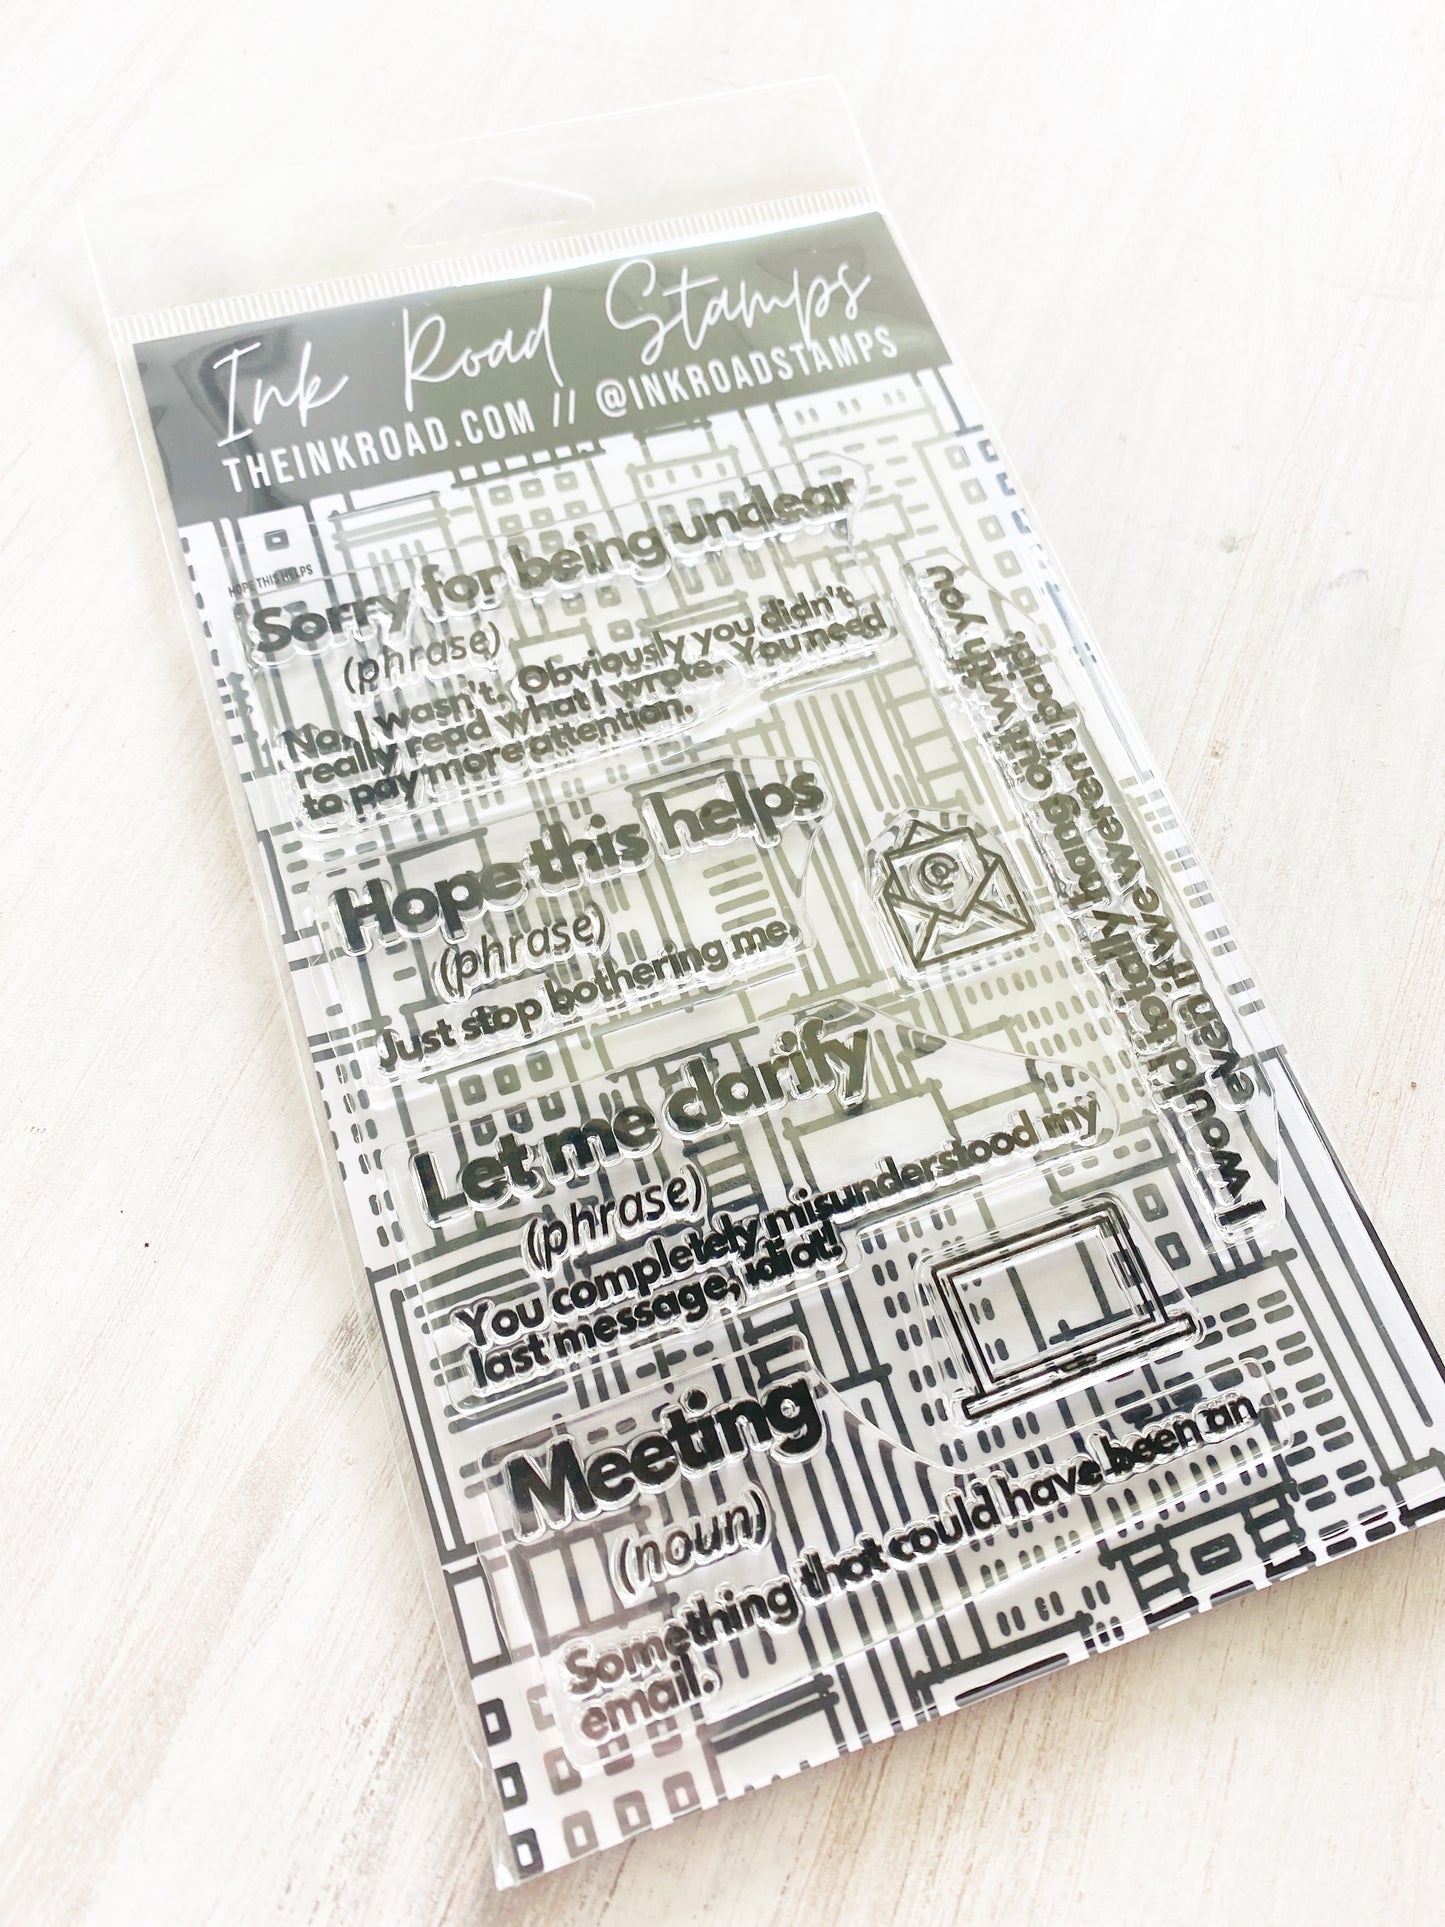 Ink Road Stamps
THEINKROAD.COM // @INKROADSTAMPS
HOPE THIS HELPS
Sorry for being unclear
(phrase)
No, I wasn't. Obviously you didn't
really read what I wrote. You need
to pay more attention.
Hope this helps
(phrase)
Just stop bothering me.
@
I would totally hang out with you
even if we weren't paid.
Let me clarify
(phrase)
You completely misunderstood my
last message, idiot!
Meeting
(noun)
Something that could have been an
email.